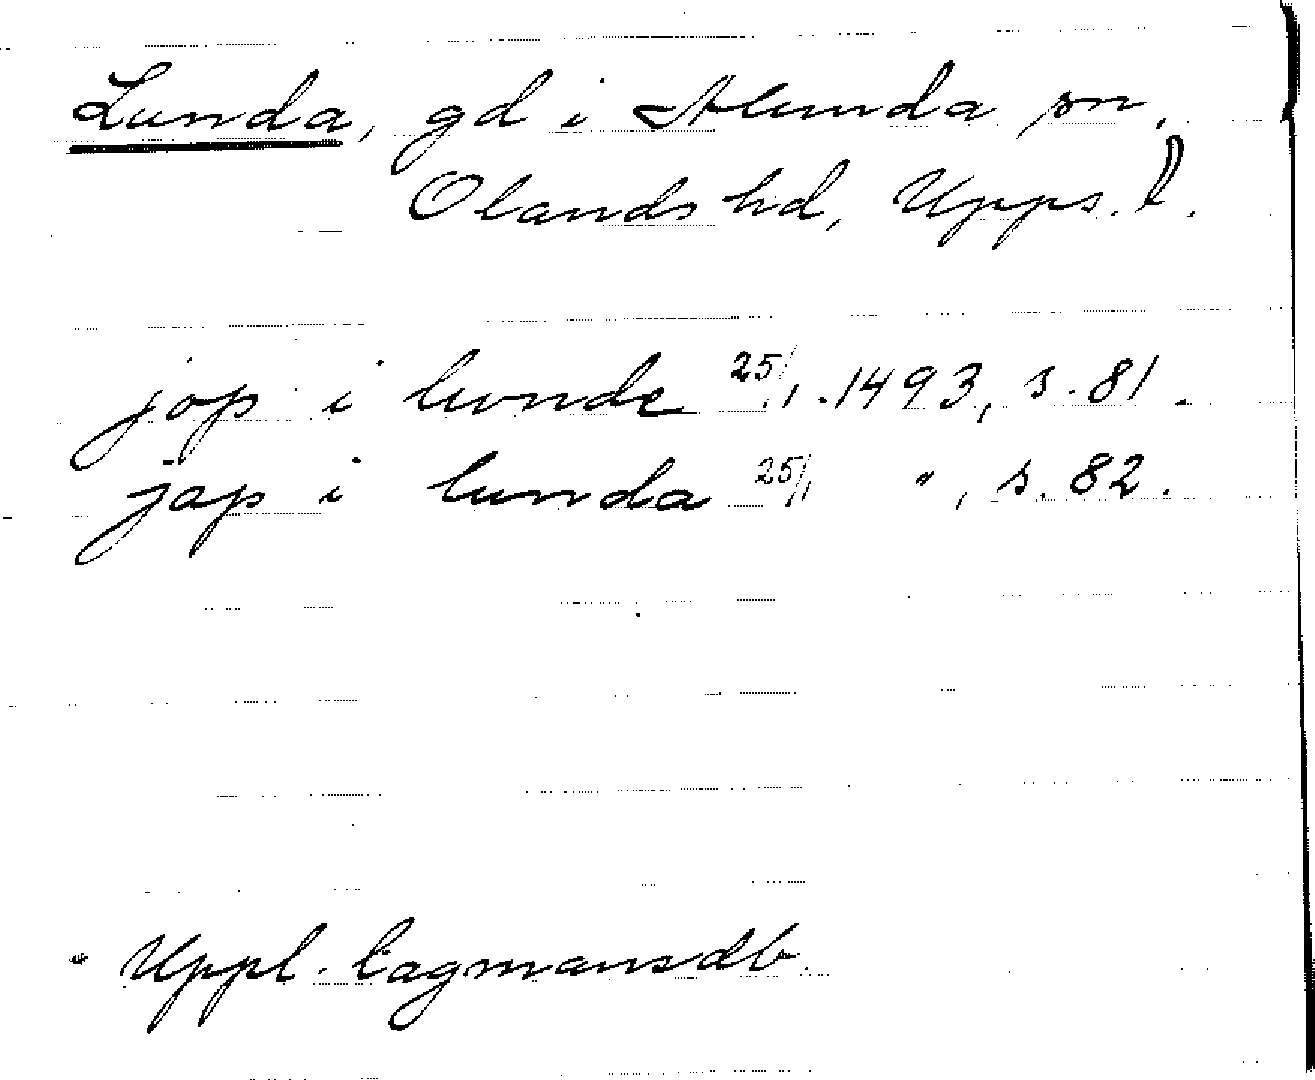 Lunda, gd i Alunda sn,
Olands hd, Upps. l.
jop i lunde 25/1. 1493, s. 81.
jap i lunda 25/1 ", s. 82.
Uppl. lagmansdb.